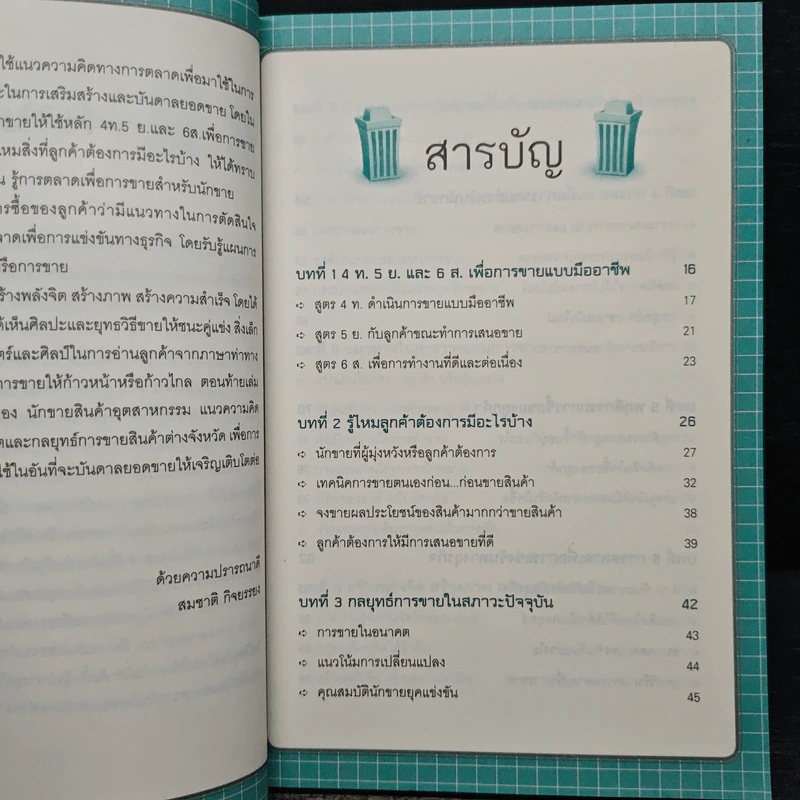 ใช้แนวความคิดทางการตลาดเพื่อมาใช้ในการ
ะในการเสริมสร้างและบันดาลยอดขาย โดยใน
ขายให้ใช้หลัก 4ท.5 ย.และ 6ส.เพื่อการขาย
ไหมสิ่งที่ลูกค้าต้องการมีอะไรบ้าง ให้ได้ทราบ
น รู้การตลาดเพื่อการขายสำหรับนักขาย
ารซื้อของลูกค้าว่ามีแนวทางในการตัดสินใจ
ลาดเพื่อการแข่งขันทางธุรกิจ โดยรับรู้แผนการ
หรือการขาย
ร้างพลังจิต สร้างภาพ สร้างความสำเร็จ โดยได้
ด้เห็นศิลปะและยุทธวิธีขายให้ชนะคู่แข่ง สิ่งเล็ก
ตร์และศิลป์ในการอ่านลูกค้าจากภาษาท่าทาง
การขายให้ก้าวหน้าหรือก้าวไกล ตอนท้ายเล่ม
อง นักขายสินค้าอุตสาหกรรม แนวความคิด
ตและกลยุทธ์การขายสินค้าต่างจังหวัด เพื่อการ
ใช้ในอันที่จะบันดาลยอดขายให้เจริญเติบโตต่อ
ด้วยความปรารถนาดี
สมชาติ กิจยรรยง
สารบัญ
บทที่ 1 4 ท. 5 ย. และ 6 ส. เพื่อการขายแบบมืออาชีพ 16
➪ สูตร 4 ท. ดำเนินการขายแบบมืออาชีพ 17
➪ สูตร 5 ย. กับลูกค้าขณะทำการเสนอขาย 21
➪ สูตร 6 ส. เพื่อการทำงานที่ดีและต่อเนื่อง 23
บทที่ 2 รู้ไหมลูกค้าต้องการมีอะไรบ้าง 26
➪ นักขายที่ผู้มุ่งหวังหรือลูกค้าต้องการ 27
➪ เทคนิคการขายตนเองก่อน...ก่อนขายสินค้า 32
➪ จงขายผลประโยชน์ของสินค้ามากกว่าขายสินค้า 38
➪ ลูกค้าต้องการให้มีการเสนอขายที่ดี 39
บทที่ 3 กลยุทธ์การขายในสภาวะปัจจุบัน 42
➪ การขายในอนาคต 43
➪ แนวโน้มการเปลี่ยนแปลง 44
➪ คุณสมบัตินักขายยุคแข่งขัน 45